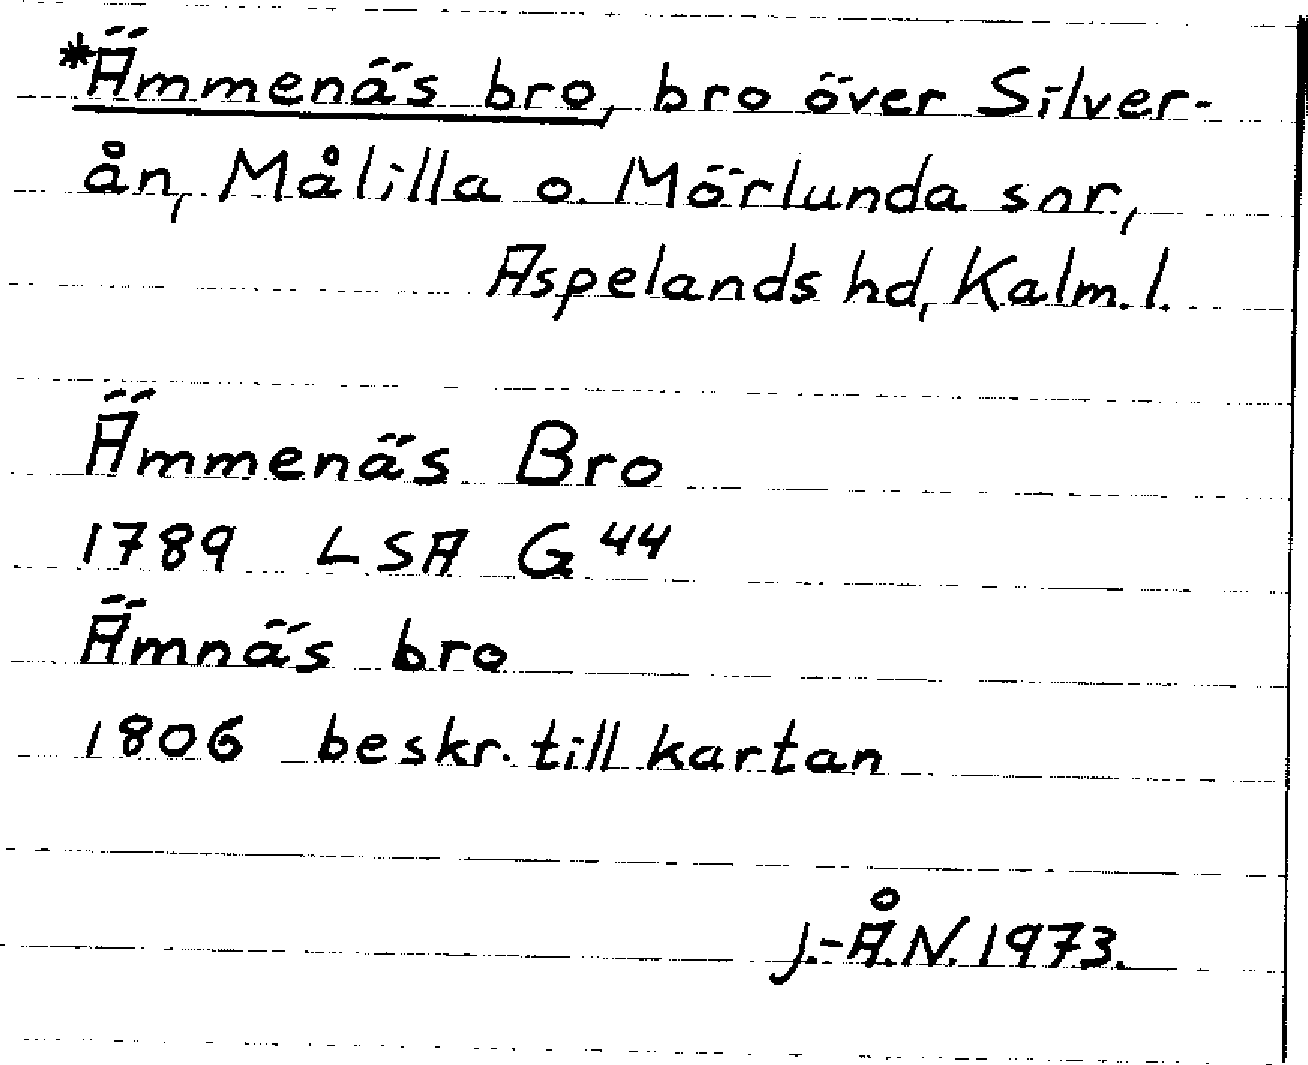 *Ämmenäs bro, bro över Silver-
ån, Målilla o. Mörlunda snr,
Aspelands hd, Kalm. l.
Ämmenäs Bro
1789 LSA G 44
Ämnäs bro
1806 beskr. till kartan
J.-Å.N. 1973.